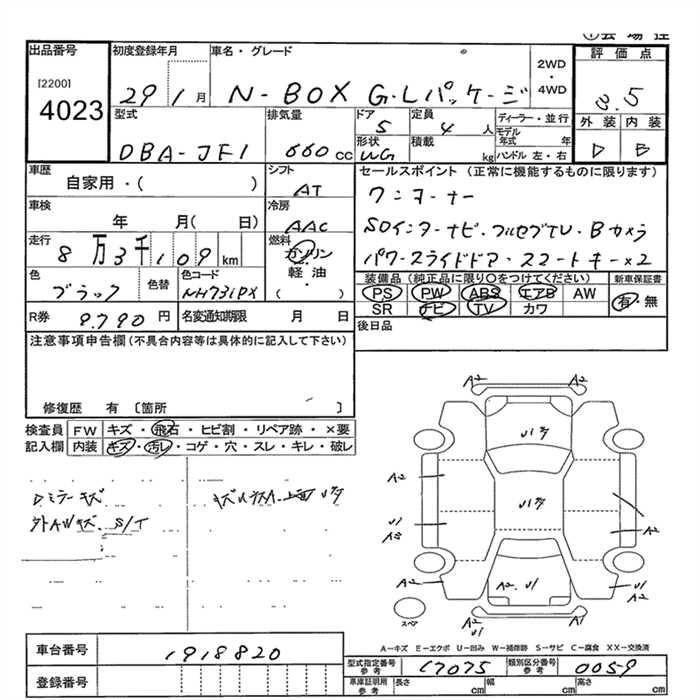 出品番号
[2200]
4023
初度登録年月
29 1月
車名・グレード
N-BOX G・Lパッケージ
2WD
・
4WD
評価点
3.5
外装 内装
D B
型式
DBA-JF1
排気量
660cc
ドア
5
定員
4人
形状
WG
積載
kg
ディーラー・並行
モデル年式 年
ハンドル 左・右
車歴
自家用・( )
シフト
AT
セールスポイント (正常に機能するものに限ります)
ワンオーナー
SDインターナビ・フルセグTV・Bカメラ
パワースライドドア・スマートキー×2
車検
年 月( 日)
冷房
AAC
走行
8万3千109km
燃料
ガソリン
軽油
・
( )
色
ブラック
色替
色コード
NH731PX
装備品 (純正品に限り○をつけてください)
PS PW ABS エアB AW
SR ナビ TV カワ
新車保証書
有・無
R券
8.790円
名変通知期限 月 日
後日品
注意事項申告欄 (不具合内容等は具体的に記入して下さい)
修復歴 有 〔箇所 〕
検査員 FW キズ・飛石・ヒビ割・リペア跡・×要
記入欄 内装 キズ・汚レ・コゲ・穴・スレ・キレ・破レ
Dミラーキズ
外AWキズ. S/T
A2 A2
A2
A2
A2
A2
A2 A1
スペア
A-キズ E-エクボ U-凹み W-補修跡 S-サビ C-腐食 XX-交換済
車台番号
1918820
登録番号
型式指定番号 参考
17075
類別区分番号 参考
0059
車庫証明用 参考
長さ cm 幅 cm 高さ cm